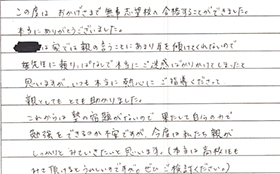 この度は おかげさまで 無事志望校へ合格することができました。
本当にありがとうございました。
は家では親の言うことにあまり耳を傾けてくれないので
先生に頼りっぱなしで本当にご迷惑ばかりかけてしまったと
思いますが、いつも本当に熱心にご指導くださって
親としてもとても助かりました。
これからは塾の宿題がないので果たして自分の力で
勉強をできるのか不安ですが、今度は私たち親が
しっかりとみていきたいと思います。(本当は高校生も
みて頂けるとうれしいのですが。ぜひご検討ください。)